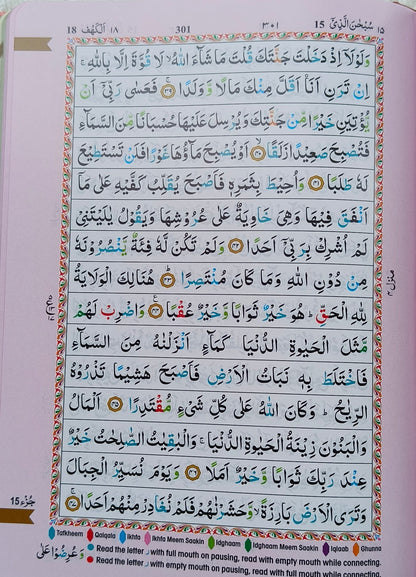 18 اَلْكَهْف ١٨ 301 ٣٠١ سُبْحٰنَ الَّذِىْۤ 15 ١٥
وَلَوْلَاۤ اِذْ دَخَلْتَ جَنَّتَكَ قُلْتَ مَا شَآءَ اللّٰهُ ۙ لَا قُوَّةَ اِلَّا بِاللّٰهِ ۚ
اِنْ تَرَنِ اَنَا۠ اَقَلَّ مِنْكَ مَالًا وَّوَلَدًا ۚ ﴿٣٩﴾ فَعَسٰى رَبِّىْۤ اَنْ
يُّؤْتِيَنِ خَيْرًا مِّنْ جَنَّتِكَ وَيُرْسِلَ عَلَيْهَا حُسْبَانًا مِّنَ السَّمَآءِ
فَتُصْبِحَ صَعِيْدًا زَلَقًا ۙ ﴿٤٠﴾ اَوْ يُصْبِحَ مَآؤُهَا غَوْرًا فَلَنْ تَسْتَطِيْعَ
لَهٗ طَلَبًا ﴿٤١﴾ وَاُحِيْطَ بِثَمَرِهٖ فَاَصْبَحَ يُقَلِّبُ كَفَّيْهِ عَلٰى مَاۤ
اَنْفَقَ فِيْهَا وَهِىَ خَاوِيَةٌ عَلٰى عُرُوْشِهَا وَيَقُوْلُ يٰلَيْتَنِىْ
لَمْ اُشْرِكْ بِرَبِّىْۤ اَحَدًا ﴿٤٢﴾ وَلَمْ تَكُنْ لَّهٗ فِئَةٌ يَّنْصُرُوْنَهٗ
مِنْ دُوْنِ اللّٰهِ وَمَا كَانَ مُنْتَصِرًا ؕ ﴿٤٣﴾ هُنَالِكَ الْوَلَايَةُ
لِلّٰهِ الْحَقِّ ؕ هُوَ خَيْرٌ ثَوَابًا وَّخَيْرٌ عُقْبًا ﴿٤٤﴾ وَاضْرِبْ لَهُمْ
مَّثَلَ الْحَيٰوةِ الدُّنْيَا كَمَآءٍ اَنْزَلْنٰهُ مِنَ السَّمَآءِ
فَاخْتَلَطَ بِهٖ نَبَاتُ الْاَرْضِ فَاَصْبَحَ هَشِيْمًا تَذْرُوْهُ
الرِّيٰحُ ؕ وَكَانَ اللّٰهُ عَلٰى كُلِّ شَىْءٍ مُّقْتَدِرًا ﴿٤٥﴾ اَلْمَالُ
وَالْبَنُوْنَ زِيْنَةُ الْحَيٰوةِ الدُّنْيَا ۚ وَالْبٰقِيٰتُ الصّٰلِحٰتُ خَيْرٌ
عِنْدَ رَبِّكَ ثَوَابًا وَّخَيْرٌ اَمَلًا ﴿٤٦﴾ وَيَوْمَ نُسَيِّرُ الْجِبَالَ
وَتَرَى الْاَرْضَ بَارِزَةً ۙ وَّحَشَرْنٰهُمْ فَلَمْ نُغَادِرْ مِنْهُمْ اَحَدًا ۚ ﴿٤٧﴾
15 جُزْء
Tafkheem Qalqala Ikhfa Ikhfa Meem Saakin Idghaam Idghaam Meem Saakin Iqlaab Ghunna
Read the letter ر with full mouth on pausing, read with empty mouth while connecting.
Read the letter ر with empty mouth on pausing, read with full mouth while connecting.
وَعُرِضُوْا عَلٰى